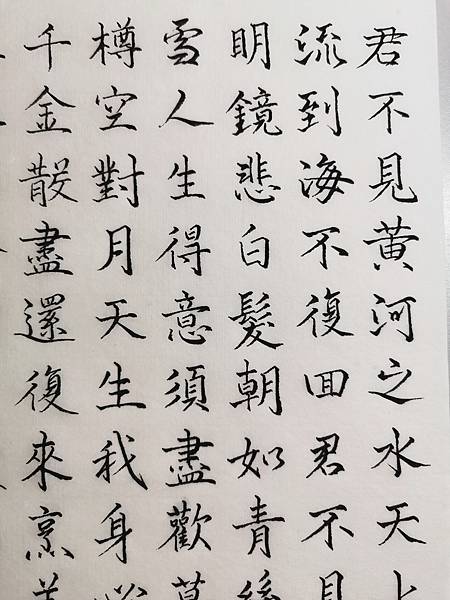 君不見黃河之水天上
流到海不復回君不見
明鏡悲白髮朝如青絲
雪人生得意須盡歡莫
樽空對月天生我身必
千金散盡還復來烹羊